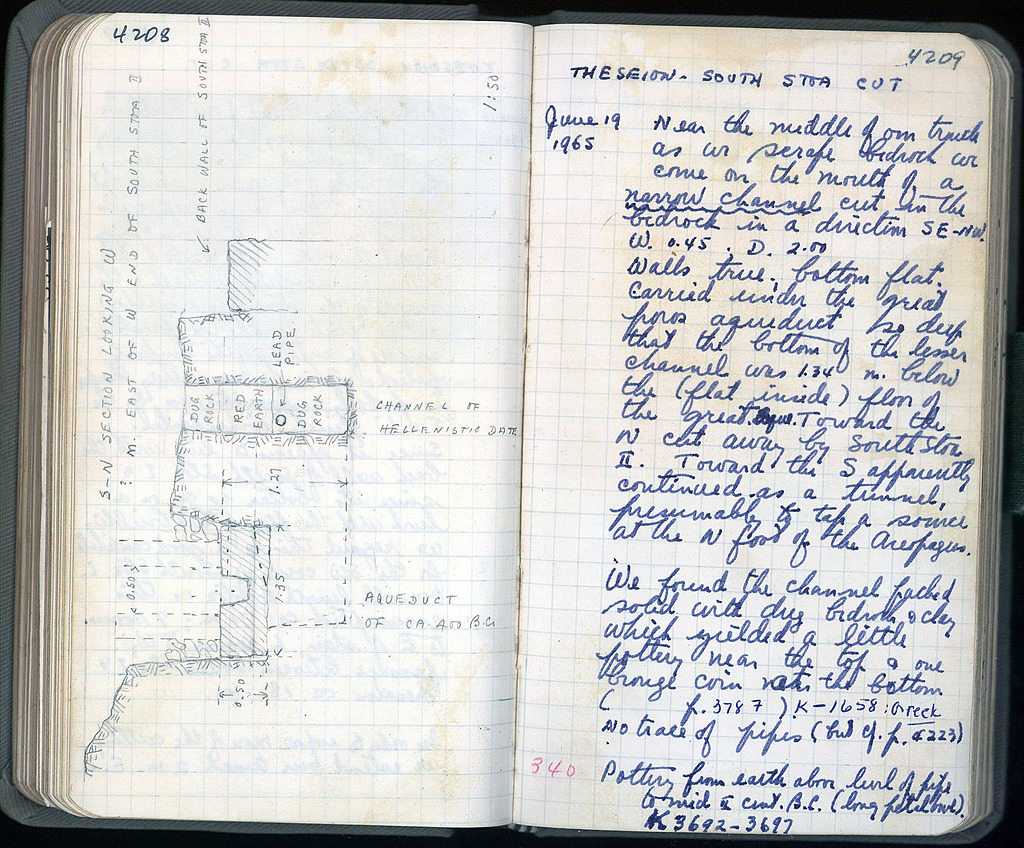 4208
S-N SECTION LOOKING W
? M. EAST OF W END OF SOUTH STOA II
BACK WALL OF SOUTH STOA II
1:50
DUG ROCK
RED EARTH
LEAD PIPE
DUG ROCK
CHANNEL OF
HELLENISTIC DATE
1.27
0.50
1.35
0.50
AQUEDUCT
OF CA. 400 B.C.
4209
THESEION - SOUTH STOA CUT
June 19 1965
Near the middle of our trench
as we scrape bedrock we
come on the mouth of a
narrow channel cut in the
bedrock in a direction SE-NW.
W. 0.45. D. 2.00
Walls true, bottom flat.
Carried under the great
poros aqueduct so deep
that the bottom of the lesser
channel was 1.34 m. below
the (flat inside) floor of
the great aqu. Toward the
N cut away by South Stoa
II. Toward the S apparently
continued as a tunnel,
presumably to tap a source
at the N foot of the Areopagus.
We found the channel packed
solid with dug bedrock & clay
which yielded a little
pottery near the top & one
bronze coin near the bottom
( p. 3787) K-1658: Greek
No trace of pipes (but cf. p. 4223)
340
Pottery from earth above level of pipe
to mid II cent. B.C. (long petal bowl).
K 3692-3697